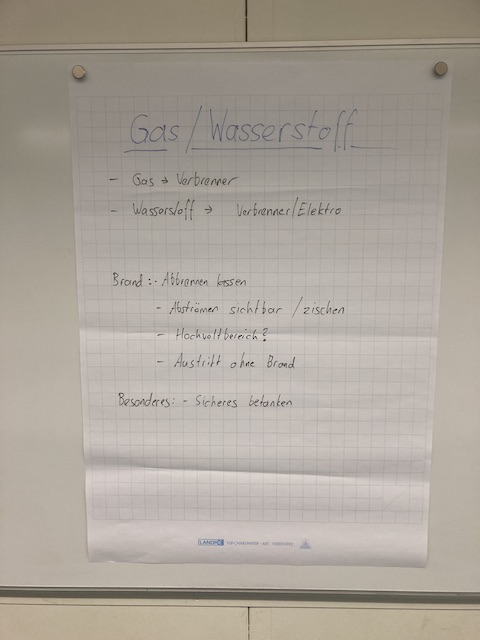 Gas/Wasserstoff
- Gas → Verbrenner
- Wasserstoff → Verbrenner/Elektro
Brand: - Abbrennen lassen
- Abströmen sichtbar / zischen
- Hochvoltbereich?
- Austritt ohne Brand
Besonderes: - Sicheres betanken